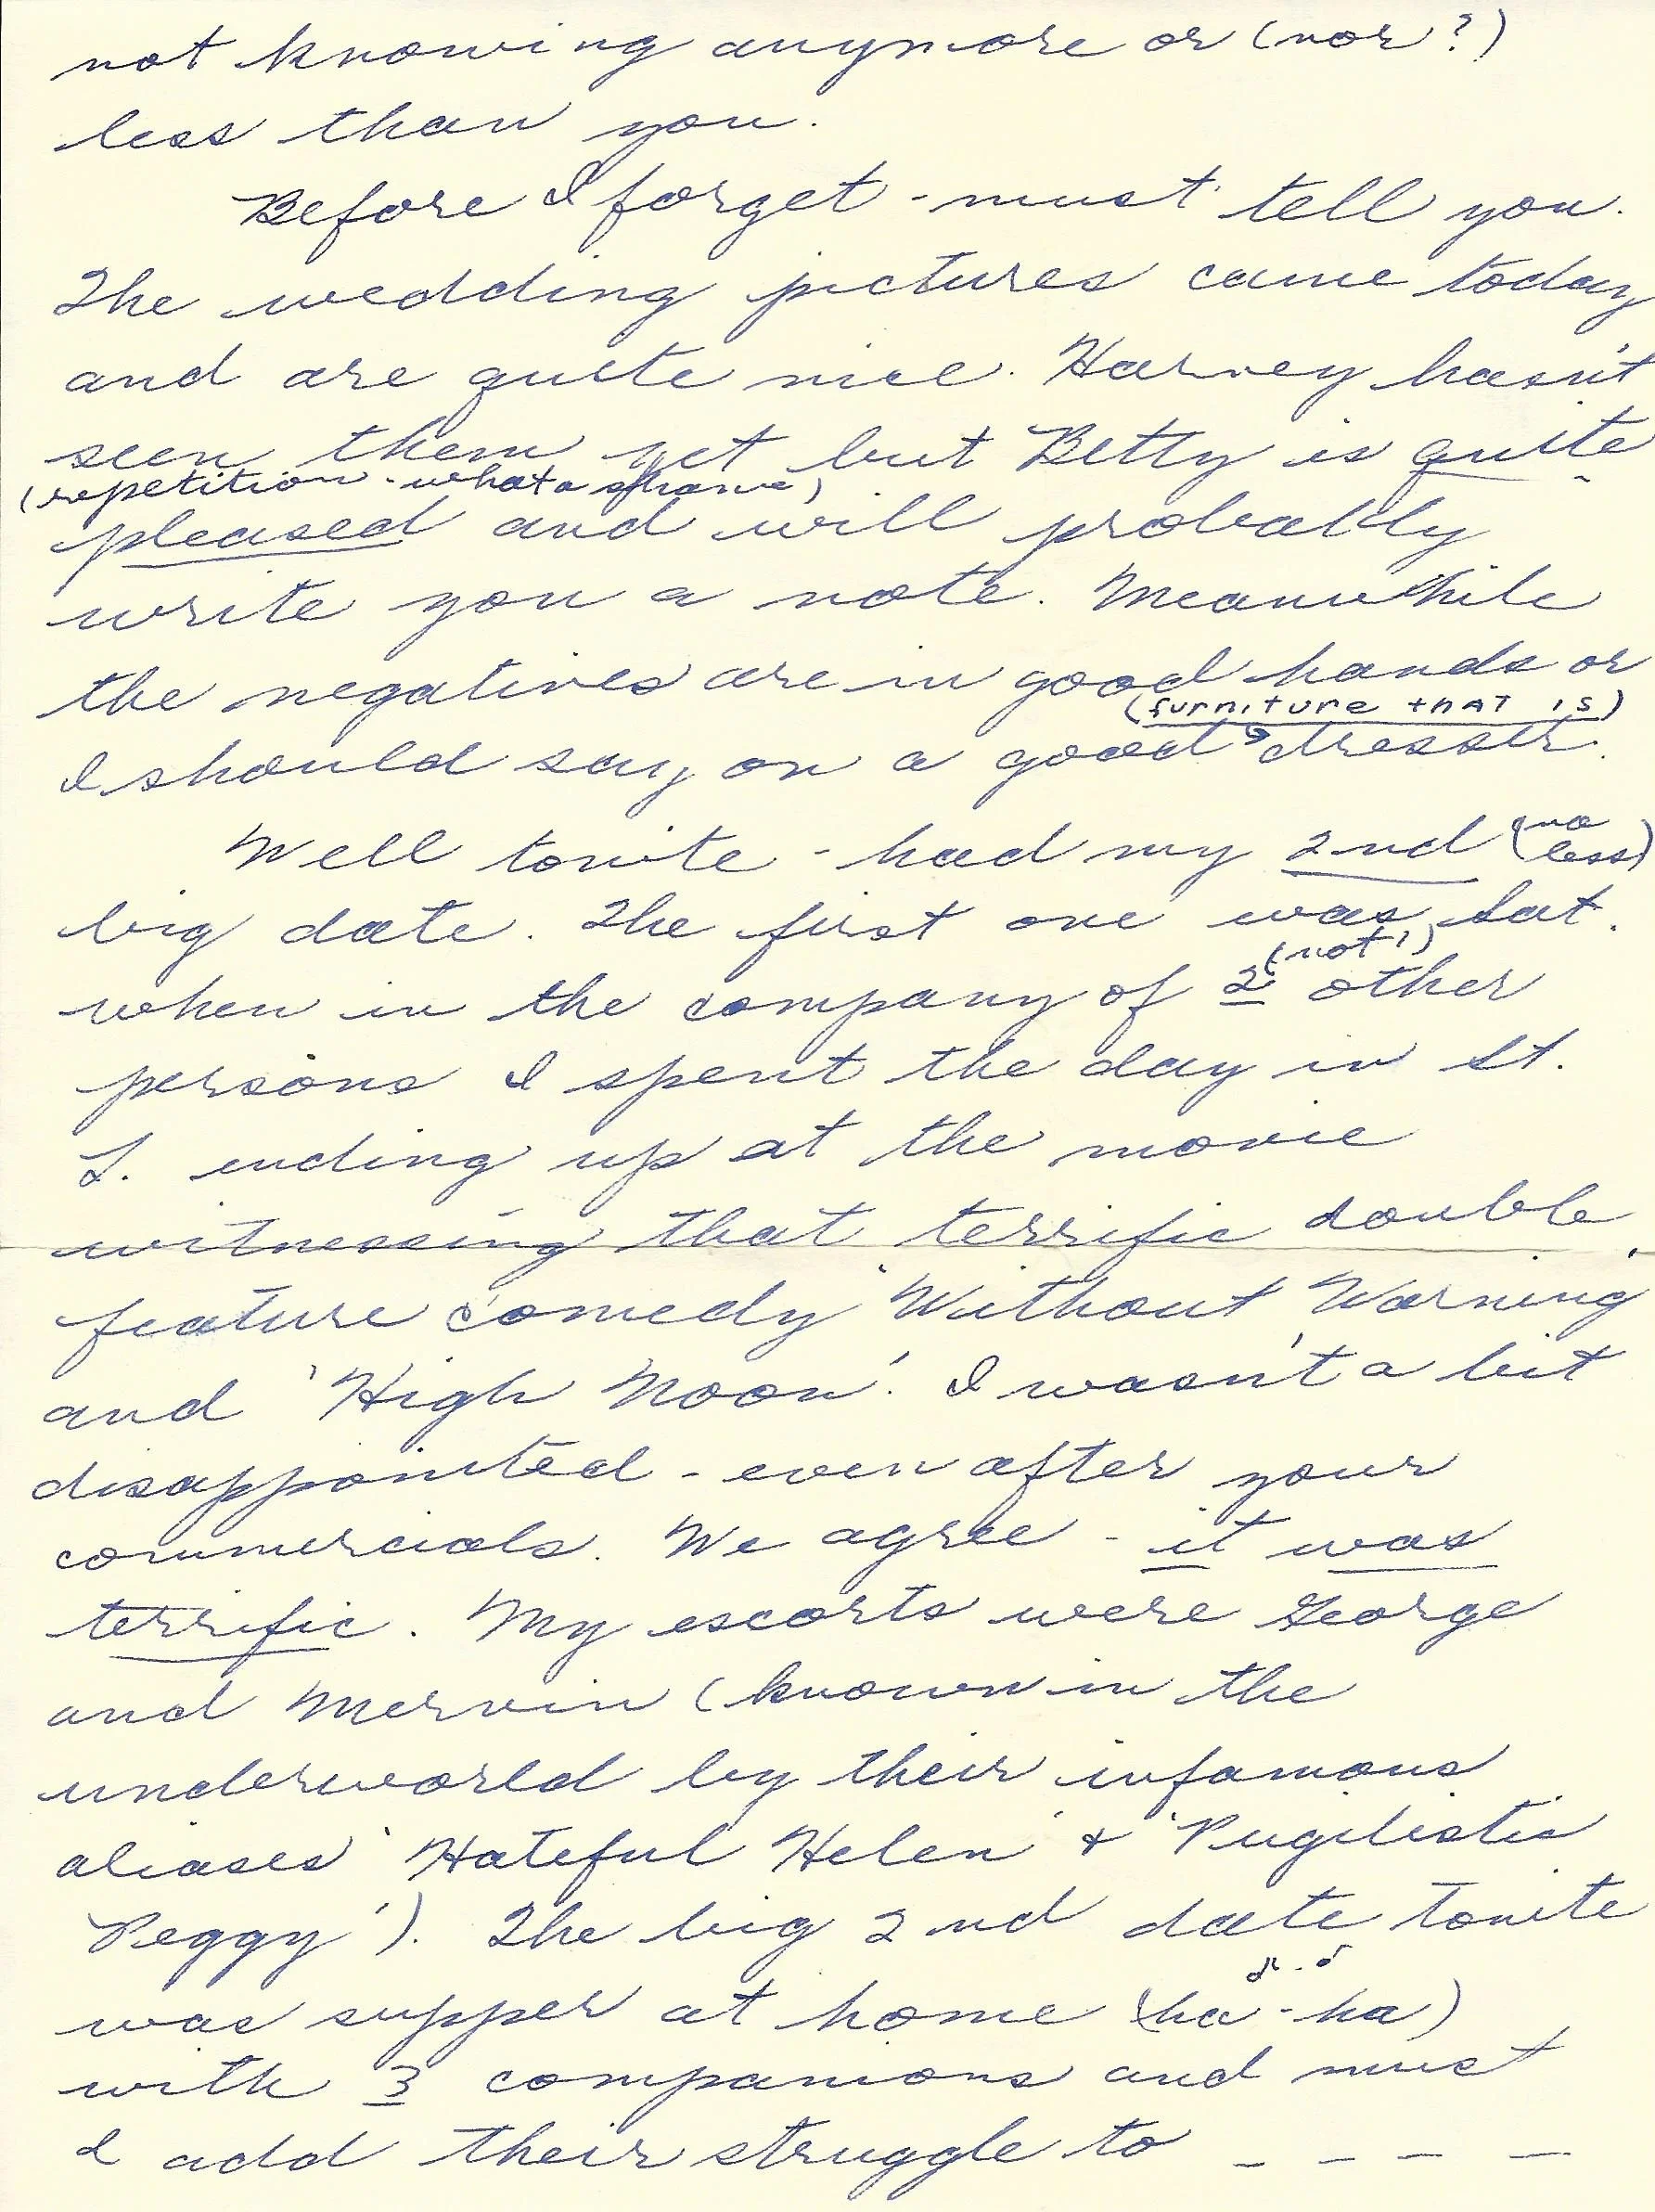 not knowing anymore or (nor?)
less than you.
Before I forget - must tell you.
The wedding pictures came today
and are quite nice. Harvey hasn't
seen them yet but Betty is quite
(repetition - what a shame)
pleased and will probably
write you a note. Meanwhile
the negatives are in good hands or
(furniture that is)
I should say on a good dresser.
Well tonite - had my 2nd (no less)
big date. The first one was Sat.
(not 1)
when in the company of 2 other
persons I spent the day in St.
L. ending up at the movie
witnessing that terrific double
feature comedy 'Without Warning'
and 'High Noon'. I wasn't a bit
disappointed - even after your
commercials. We agree - it was
terrific. My escorts were George
and Mervin (known in the
underworld by their infamous
aliases 'Hateful Helen' & 'Pugilistic
Peggy'). The big 2nd date tonite
was supper at home (ha - ha)
with 3 companions and must
I add their struggle to - - - -